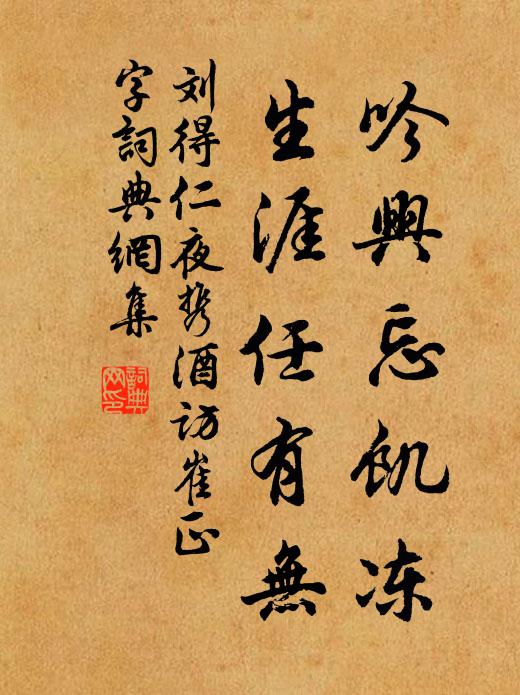 吟興忘飢冻
生涯任有無
刘得仁夜携酒访崔正
字詞典網集
詞典网印